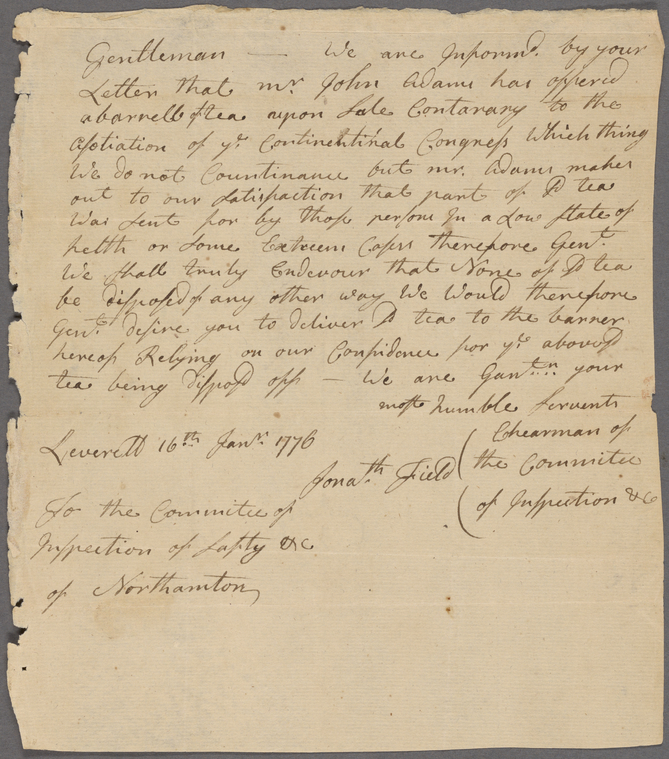 Gentleman — We are Inform'd by your
Letter that mr John Adams has offered
a barrell of tea upon Sale Contarary to the
Assotiation of ye Continentinal Congress Which thing
We do not Countinance but mr. Adams makes
out to our Satisfaction that part of sd tea
Was Sent for by those persons In a Low State of
helth or Some Extreem Cases therefore Gent.
We Shall truly Endevour that None of sd tea
be disposed of any other way We Would therefore
Gent. desire you to deliver sd tea to the barrer
hereof Relying on our Confidence for ye abovesd
tea being disposd off — We are Gantmn your
most humble Servents
Leverett 16th Janr 1776
Jonath Field ( Chearman of
the Commitee
of Inspection &c
To the Commitee of
Inspection of Safty &c
of Northamton